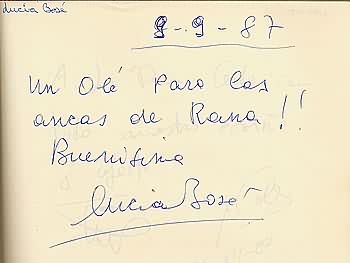 Lucia Bosé
8-9-87
Un Olé Para las
ancas de Rana!!
Buenisima
Lucia Bosé